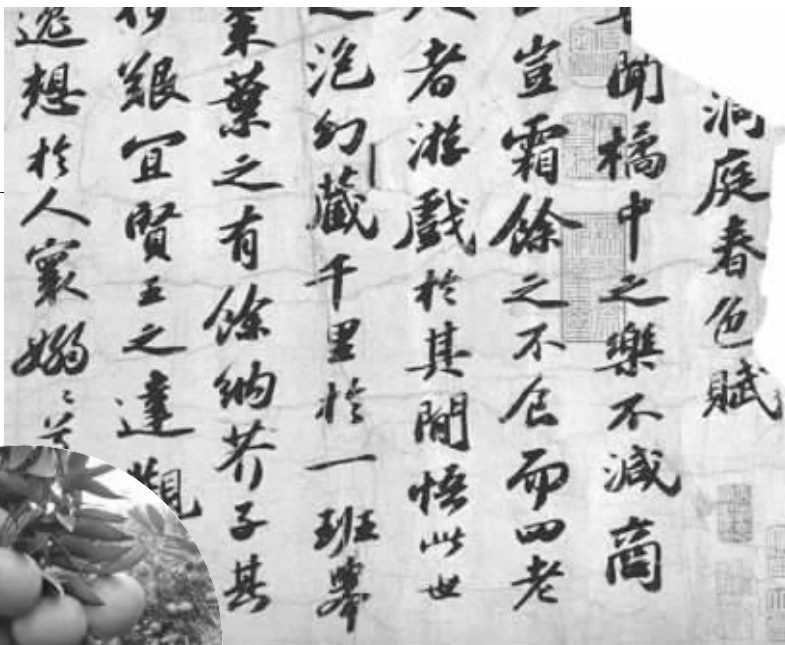 洞庭春色賦
聞橘中之樂不減商
豈霜餘之不食而四老
人者游戲於其間悟此世
之泡幻藏千里於一班舉
棗葉之有餘納芥子其
何艱宜賢王之達觀
逸想於人寰嫋〻